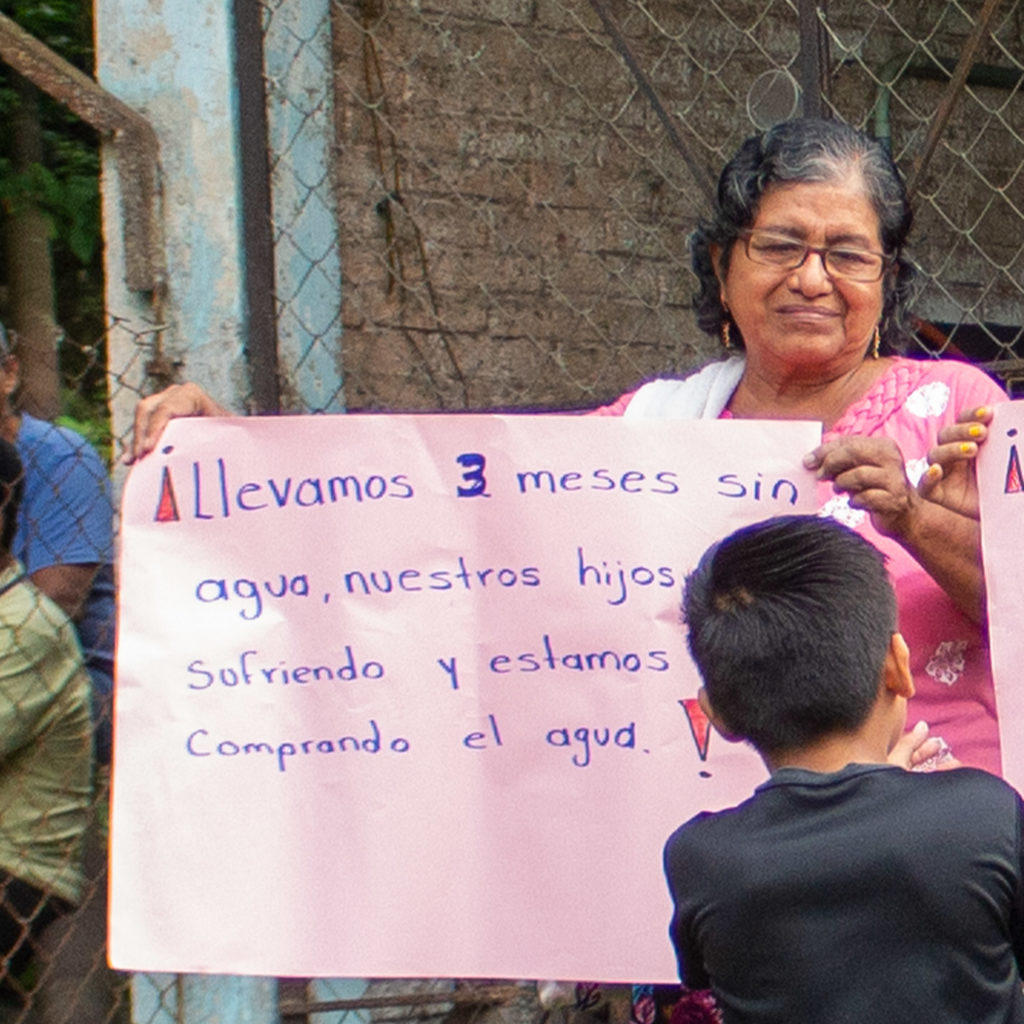 ¡Llevamos 3 meses sin
agua, nuestros hijos
sufriendo y estamos
Comprando el agua. !
¡